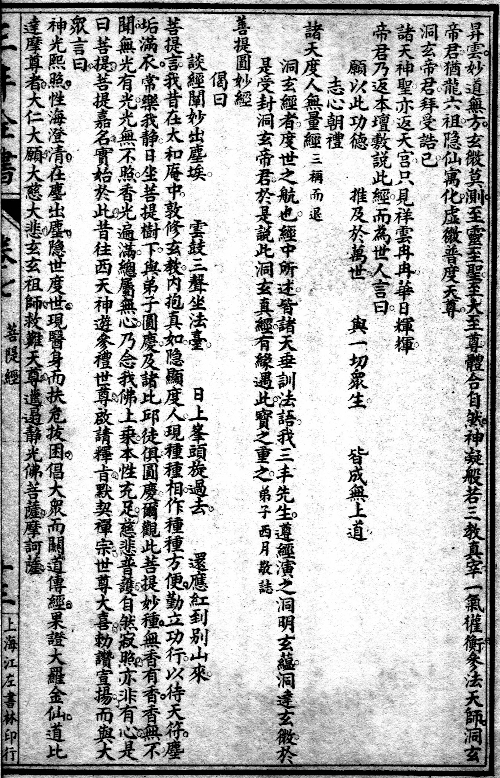 昇雲妙道無方玄微莫測至靈至聖至大至尊體合自然神凝般若三教真宰一氣權衡參法天師洞玄
帝君猶龍六祖隐仙寓化虛微普度天尊
洞玄帝君拜受誥已
諸天神聖亦返天宫只見祥雲冉冉華日輝輝
帝君乃返本壇敷説此經而為世人言曰
願以此功德 推及於萬世 與一切衆生 皆成無上道
志心朝禮
諸天度人無量經三稱而退
洞玄經者度世之航也經中所述皆諸天垂訓法語我三丰先生遵經演之洞明玄蘊洞達玄微於
是受封洞玄帝君於是説此洞玄真經有緣遇此寶之重之弟子西月敬誌
菩提圓妙經
偈曰
談經闡妙出塵埃 雲鼓三聲坐法臺 日上峯頭旋過去 還應紅到别山來
菩提言我昔在太和庵中敦修玄教内抱真如隐顯度人現種種相作種種方便勤立功行以待天符塵
垢滿衣常樂我静日坐菩提樹下與弟子圓慶及諸比邱徒俱圓慶爾觀此菩提妙種無香有香香無不
聞無光有光光無不照香光遍滿總屬無心乃念我佛上乘本性充足慈悲普護自然寂照亦非有心是
曰菩提菩提嘉名實始於此昔往西天神遊參禮世尊啟請釋旨默契禪宗世尊大喜勅讚宣揚而與大
衆言曰
神光熙照性海澄清在塵出塵隐世度世現醫身而扶危拔困倡大衆而闢道傳經果證大羅金仙道比
達摩尊者大仁大願大慈大悲玄玄祖師救難天尊遣遏静光佛菩薩摩訶薩
三丰全書
卷七
菩提經
十三
上海江左書林印行